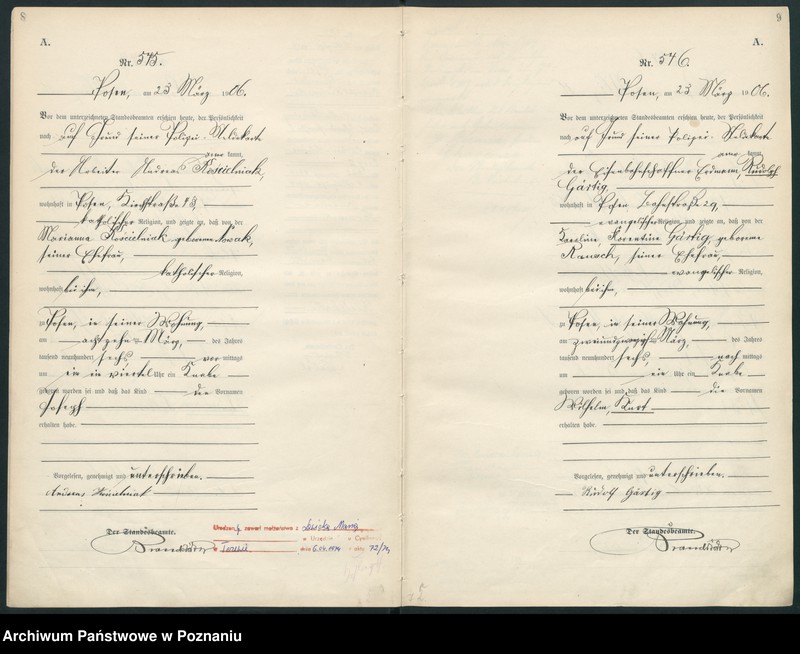 8
A.
Nr. 545.
Posen, am 23 März 1906.
Vor dem unterzeichneten Standesbeamten erschien heute, der Persönlichkeit
nach auf Grund seiner Polizei-Meldekarte
aner kannt,
der Arbeiter Andreas Koscielniak,
wohnhaft in Posen,
katholischer Religion, und zeigte an, daß von der
Marianna Koscielniak geborenen Nowak,
seiner Ehefrau,
katholischer Religion,
wohnhaft bei ihm,
zu Posen, in seiner Wohnung,
am achtzehn März, des Jahres
tausend neunhundert sechs vor mittags
um ein ein viertel Uhr ein Knabe
geboren worden sei und daß das Kind die Vornamen
Joseph
erhalten habe.
Vorgelesen, genehmigt und unterschrieben.
Andreas Koscielniak
Der Standesbeamte.
zawarł małżeństwo z
w Urzędzie
w dnia 6.IV.1974 akt 72/74
9
A.
Nr. 546.
Posen, am 23 März 1906.
Vor dem unterzeichneten Standesbeamten erschien heute, der Persönlichkeit
nach auf Grund seiner Polizei-Meldekarte
aner kannt,
der Eisenbahnschaffner Erdmann, Rudolf
Gärtig
wohnhaft in Posen 29,
evangelischer Religion, und zeigte an, daß von der
Karoline Florentine Gärtig, geborenen
seiner Ehefrau,
evangelischer Religion,
wohnhaft bei ihm,
zu Posen, in seiner Wohnung,
am zweiundzwanzig März, des Jahres
tausend neunhundert sechs, nach mittags
um ein Uhr ein Knabe
geboren worden sei und daß das Kind die Vornamen
Wilhelm, Kurt
erhalten habe.
Vorgelesen, genehmigt und unterschrieben.
Rudolf Gärtig
Der Standesbeamte.
Archiwum Państwowe w Poznaniu